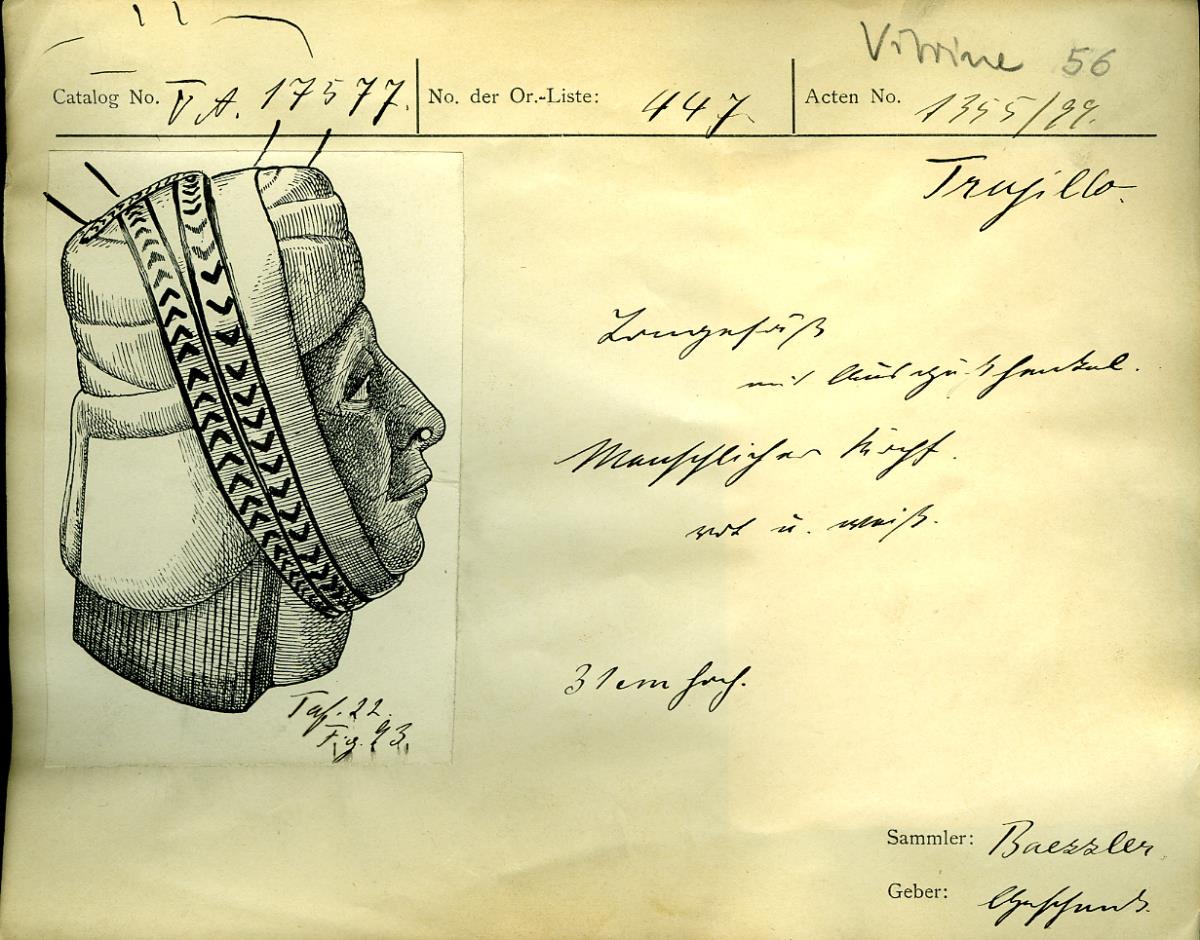 Vitrine 56
Catalog No. V A. 17577. No. der Or.-Liste: 447. Acten No. 1355/99.
Trujillo.
Tongefäß
mit Ausguß
Menschlicher Kopf.
rot u. weiß.
31 cm hoch.
Taf. 22.
Fig. 93
Sammler: Baessler
Geber: Geschenk.